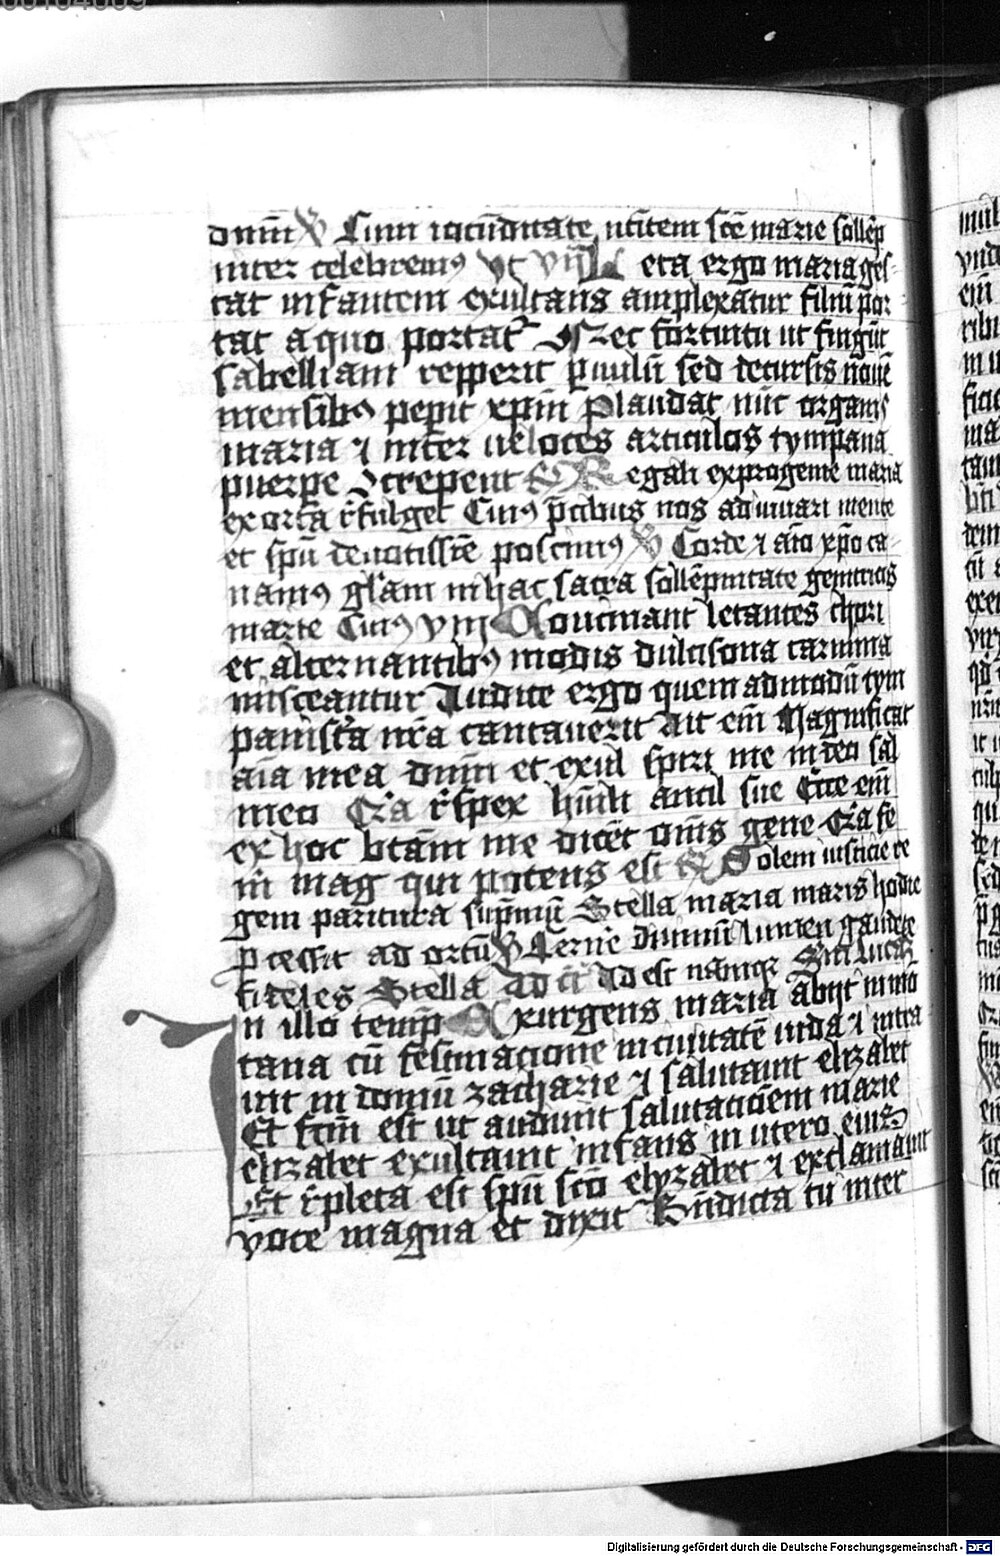 dominū ℣ Cum iocūditate natiuitatem scē marie sollēp
niter celebremus Ut VIII L eta ergo maria ges-
tat infantem exultans amplexatur filiū por
tat a quo portat᷑ Nec fortuitu ut fingūt
sabelliani repperit puulū sed decursis nouē
mensibus pepit xpm Plaudat nūc organis
maria ⁊ inter ueloces articulos tympana
puerpe ɔcrepent ℟ Regali ex progenie maria
exorta rēfulget Cuius p̄cibus nos adiuuari mente
et spū deuotissīe poscimus ℣ Corde ⁊ aīo xp̄o ca-
namus glīam in hac sacra sollēpnitate genitricis
marie Cuius VIIII Concinant letantes chori
et alternantibus modis dulcisona carmina
misceantur Audite ergo quemadmodū tym
panistra nr̄a cantauerit Ait em̄ Magnificat
aīa mea dn̄m et exul spirz me in deo sal
meo Qr̄a rēspex hūili ancil sue Ecce em̄
ex hoc btām me dicēt om̄s gene Qr̄a fe
m̄ mag qui potens est ℟ Solem iusticie re
gem paritura sup̄mū Stella maria maris hodie
p̄cessit ad ortū ℣ Cernē diuinū lumen gaudete
fideles Stella Ad Adest namque Scm̄ Lucā
In illo temp̄ Exurgens maria abijt in mō
tana cū festinacione in ciuitatē iuda ⁊ intra
uit in domū zacharie ⁊ salutauit elizabet
Et fcm̄ est ut audiuit salutacioēm marie
elizabet exultauit infans in utero eius
Et rēpleta est spū scō elyzabet ⁊ exclamauit
voce magna et dixit Bn̄dicta tu inter
Digitalisierung gefördert durch die Deutsche Forschungsgemeinschaft - DFG